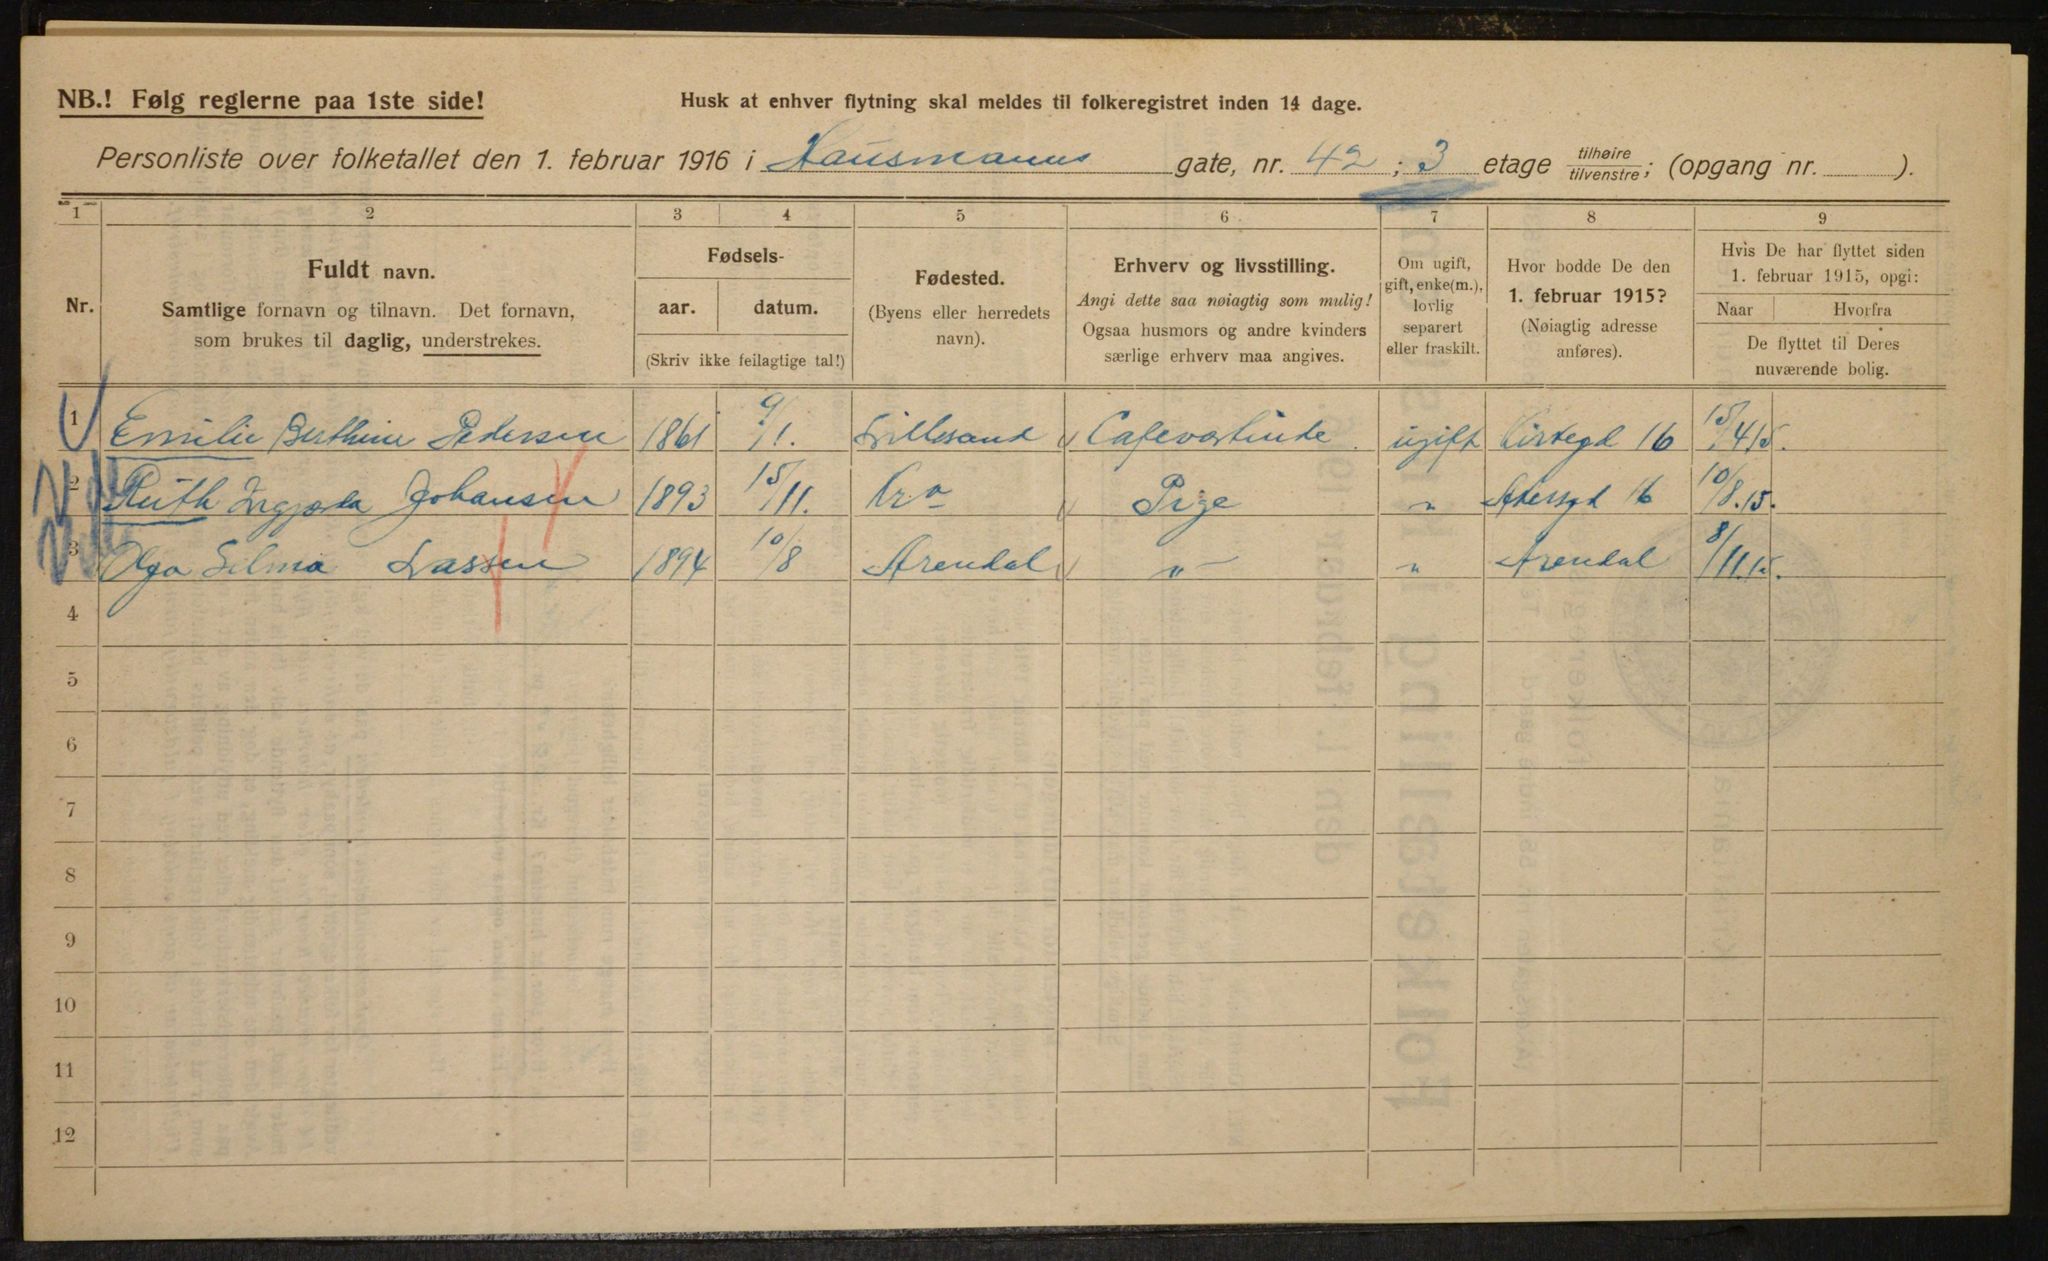 NB.! Følg reglerne paa 1ste side!
Husk at enhver flytning skal meldes til folkeregistret inden 14 dage.
Personliste over folketallet den 1. februar 1916 i Hausmanns gate, nr. 42 ; 3 etage tilhøire / tilvenstre ; (opgang nr. ).
1 2 3 4 5 6 7 8 9
Nr.
Fuldt navn.
Samtlige fornavn og tilnavn. Det fornavn,
som brukes til daglig, understrekes.
Fødsels-
aar. datum.
(Skriv ikke feilagtige tal!)
Fødested.
(Byens eller herredets
navn).
Erhverv og livsstilling.
Angi dette saa nøiagtig som mulig!
Ogsaa husmors og andre kvinders
særlige erhverv maa angives.
Om ugift,
gift, enke(m.),
lovlig
separert
eller fraskilt.
Hvor bodde De den
1. februar 1915?
(Nøiagtig adresse
anføres).
Hvis De har flyttet siden
1. februar 1915, opgi:
Naar Hvorfra
De flyttet til Deres
nuværende bolig.
1 Emilie Berthine Pedersen 1861 9/1. Lillesand Cafevertinde ugift Kirkegd 16 15/4 15.
2 Ruth Johansen 1893 15/11. Kra Pige " Akersgt 16 10/8.15.
3 Olga Silma Lassen 1894 10/8 Arendal " " Arendal 8/11.15.
4
5
6
7
8
9
10
11
12